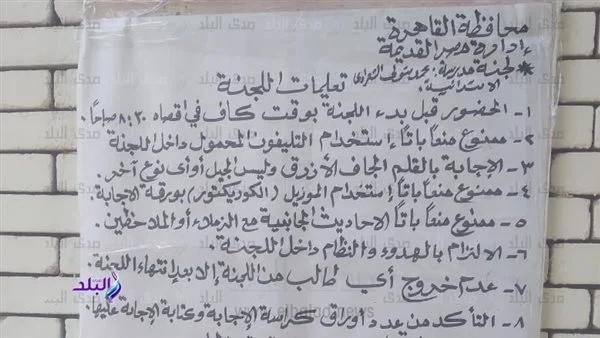 محافظة القاهرة
إدارة مصر القديمة
* لجنة مدرسة: محمد متولى الشعراوى الابتدائية.
تعليمات اللجنة
١- الحضور قبل بدء اللجنة بوقت كاف في اقصاه ٨:٣٠ صباحاً.
٢- ممنوع منعاً باتاً إستخدام التليفون المحمول داخل اللجنة
٣- الإجابة بالقلم الجاف الأزرق وليس الجبل أو أى نوع آخر.
٤- ممنوع منعاً باتاً إستخدام المزيل (الكوريكتور) بورقة الإجابة.
٥- ممنوع منعاً باتاً الاحاديث الجانبية مع الزملاء أو الملاحظين.
٦- الالتزام بالهدوء والنظام داخل اللجنة.
٧- عدم خروج أي طالب من اللجنة إلا بعد إنتهاء اللجنة.
٨- التأكد من عدد أوراق كراسة الإجابة وكتابة الإجابة عليها.
صدى البلد
elbalad.news